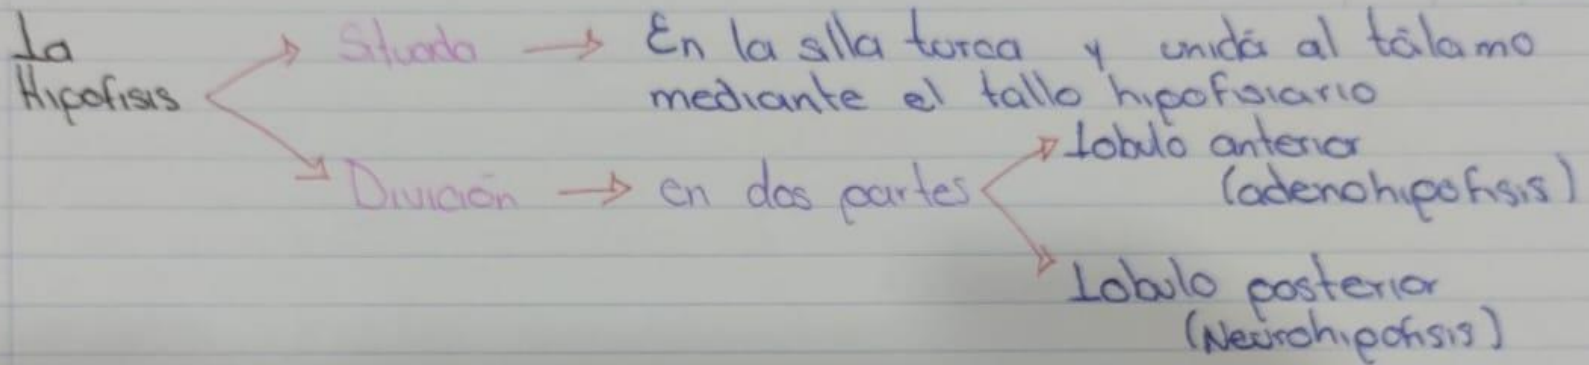 La
Hipofisis
Situada → En la silla turca y unida al tálamo
mediante el tallo hipofisiario
División → en dos partes
Lobulo anterior
(adenohipofisis)
Lobulo posterior
(Neurohipofisis)